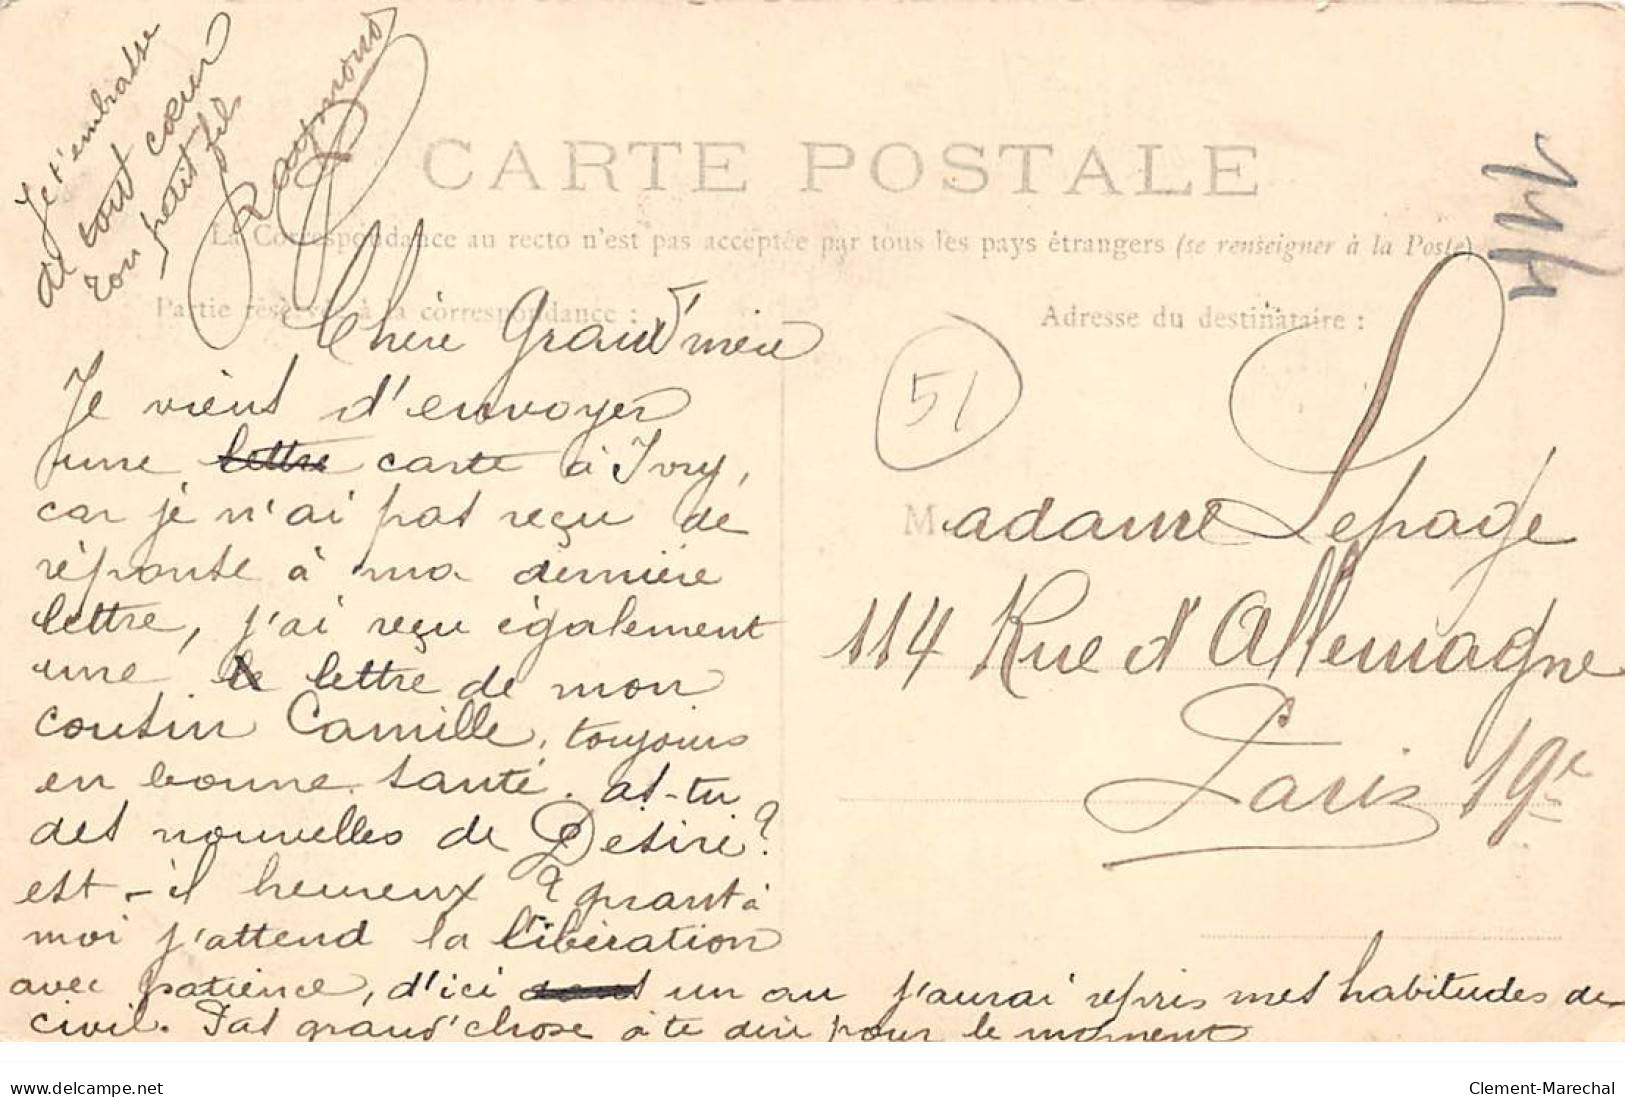 CARTE POSTALE
La Correspondance au recto n'est pas acceptée par tous les pays étrangers (se renseigner à la Poste)
Partie réservée à la correspondance :
Adresse du destinataire :
144
51
Chère Grand'mère
Je viens d'envoyer
une lettre carte à Ivry,
car je n'ai pas reçu de
réponse à ma dernière
lettre, j'ai reçu également
une le lettre de mon
cousin Camille, toujours
en bonne santé. as-tu
des nouvelles de Désiré ?
est-il heureux ? quant à
moi j'attend la libération
avec patience, d'ici dans un an j'aurai repris mes habitudes de
civil. Pas grand'chose à te dire pour le moment
Je t'embrasse
de tout cœur
ton petit fils
Raymond
Madame Lepage
114 Rue d'Allemagne
Paris 19e
www.delcampe.net
Clement-Marechal